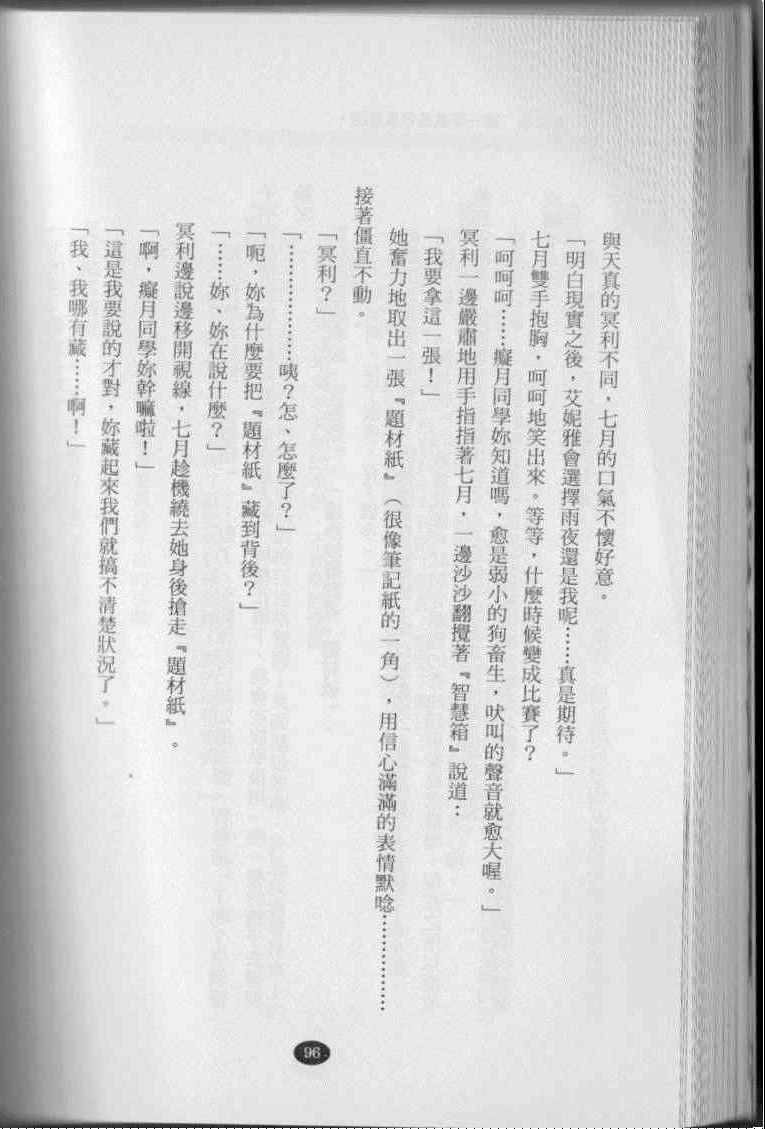 與天真的冥利不同，七月的口氣不懷好意。
「明白現實之後，艾妮雅會選擇雨夜還是我呢……真是期待。」
七月雙手抱胸，呵呵地笑出來。等等，什麼時候變成比賽了？
「呵呵呵……癡月同學妳知道嗎，愈是弱小的狗畜生，吠叫的聲音就愈大喔。」
冥利一邊嚴肅地用手指指著七月，一邊沙沙翻攪著『智慧箱』說道：
「我要拿這一張！」
她奮力地取出一張『題材紙』（很像筆記紙的一角），用信心滿滿的表情默唸………………
接著僵直不動。
「冥利？」
「………………咦？怎、怎麼了？」
「呃，妳為什麼要把『題材紙』藏到背後？」
「……妳、妳在說什麼？」
冥利邊說邊移開視線，七月趁機繞去她身後搶走『題材紙』。
「啊，癡月同學妳幹嘛啦！」
「這是我要說的才對，妳藏起來我們就搞不清楚狀況了。」
「我、我哪有藏……啊！」
96